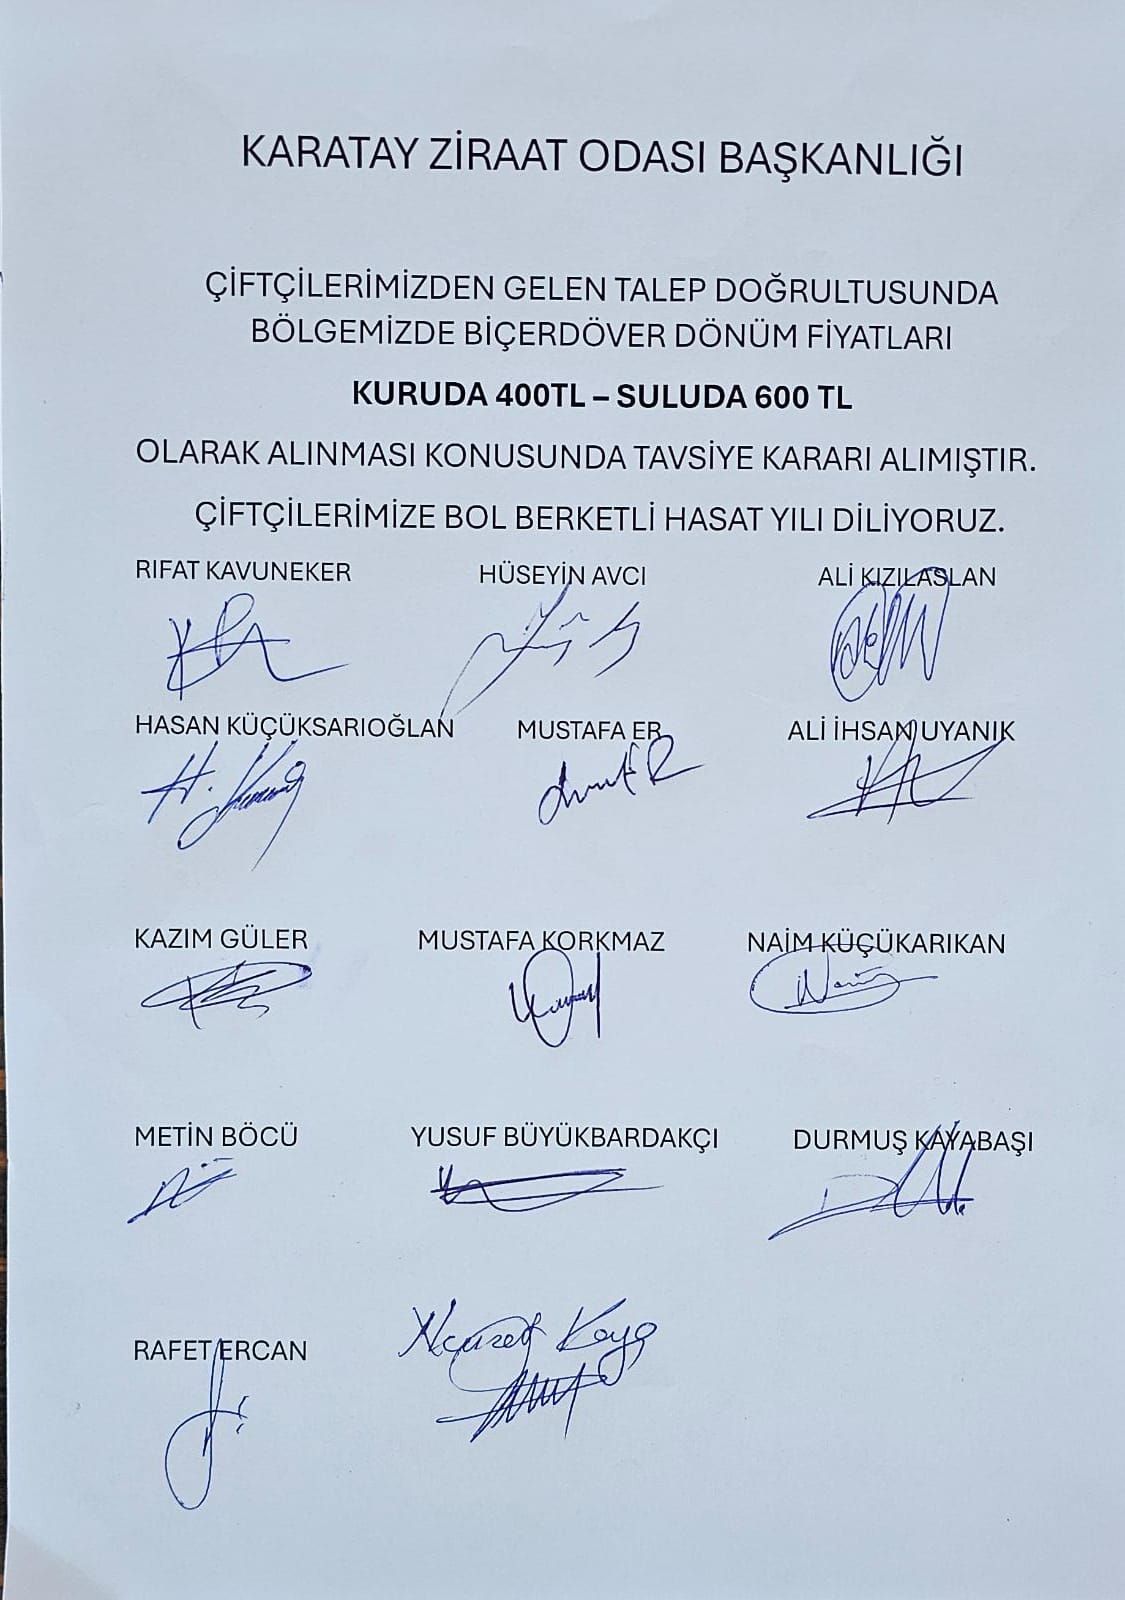 KARATAY ZİRAAT ODASI BAŞKANLIĞI
ÇİFTÇİLERİMİZDEN GELEN TALEP DOĞRULTUSUNDA
BÖLGEMİZDE BİÇERDÖVER DÖNÜM FİYATLARI
KURUDA 400TL – SULUDA 600 TL
OLARAK ALINMASI KONUSUNDA TAVSİYE KARARI ALIMIŞTIR.
ÇİFTÇİLERİMİZE BOL BERKETLİ HASAT YILI DİLİYORUZ.
RIFAT KAVUNEKER HÜSEYİN AVCI ALİ KIZILASLAN
HASAN KÜÇÜKSARIOĞLAN MUSTAFA ER ALİ İHSAN UYANIK
KAZIM GÜLER MUSTAFA KORKMAZ NAİM KÜÇÜKARIKAN
METİN BÖCÜ YUSUF BÜYÜKBARDAKÇI DURMUŞ KAYABAŞI
RAFET ERCAN